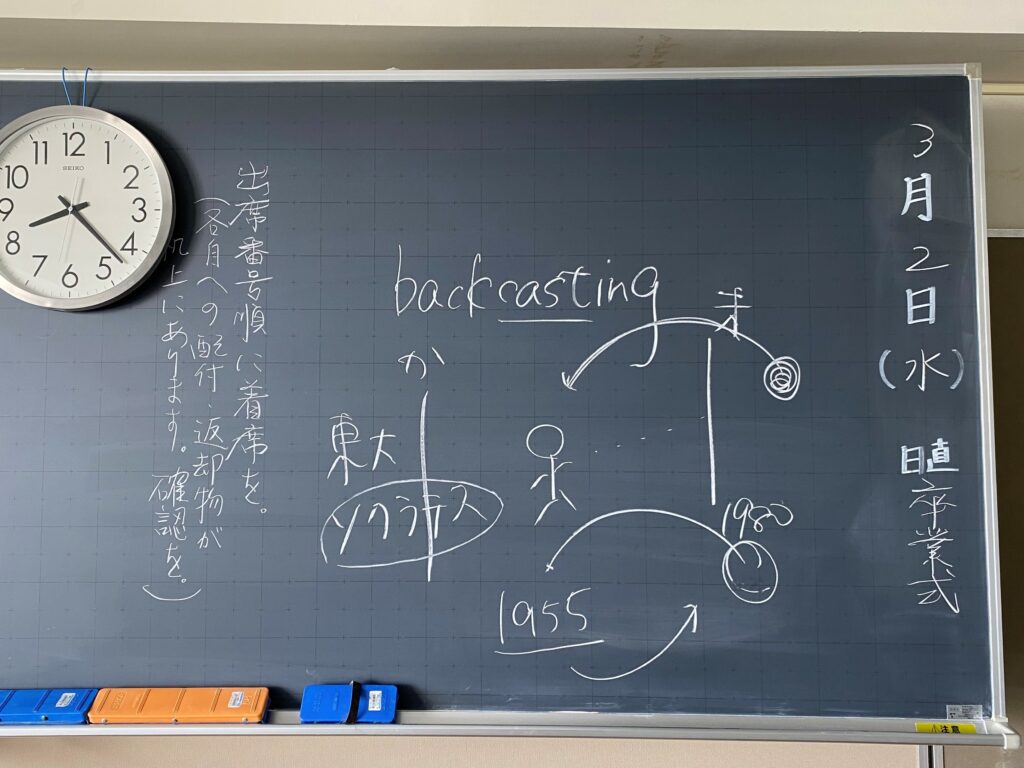 3月2日(水)
日直 卒業式
backcasting
か
東大
ソクラテス
1980
1955
出席番号順に着席を。
(各自への配付・返却物が
机上にあります。確認を。)
12
1
2
3
4
5
6
7
8
9
10
11
SEIKO
注意